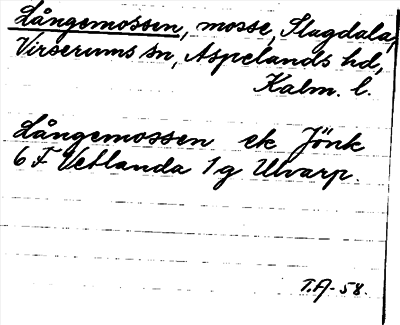 Långemossen, mosse, Slagdala,
Virserums sn, Aspelands hd,
Kalm. l.
Långemossen ek Jönk
6 F Vetlanda 1 g Ulvarp.
T.A-58.